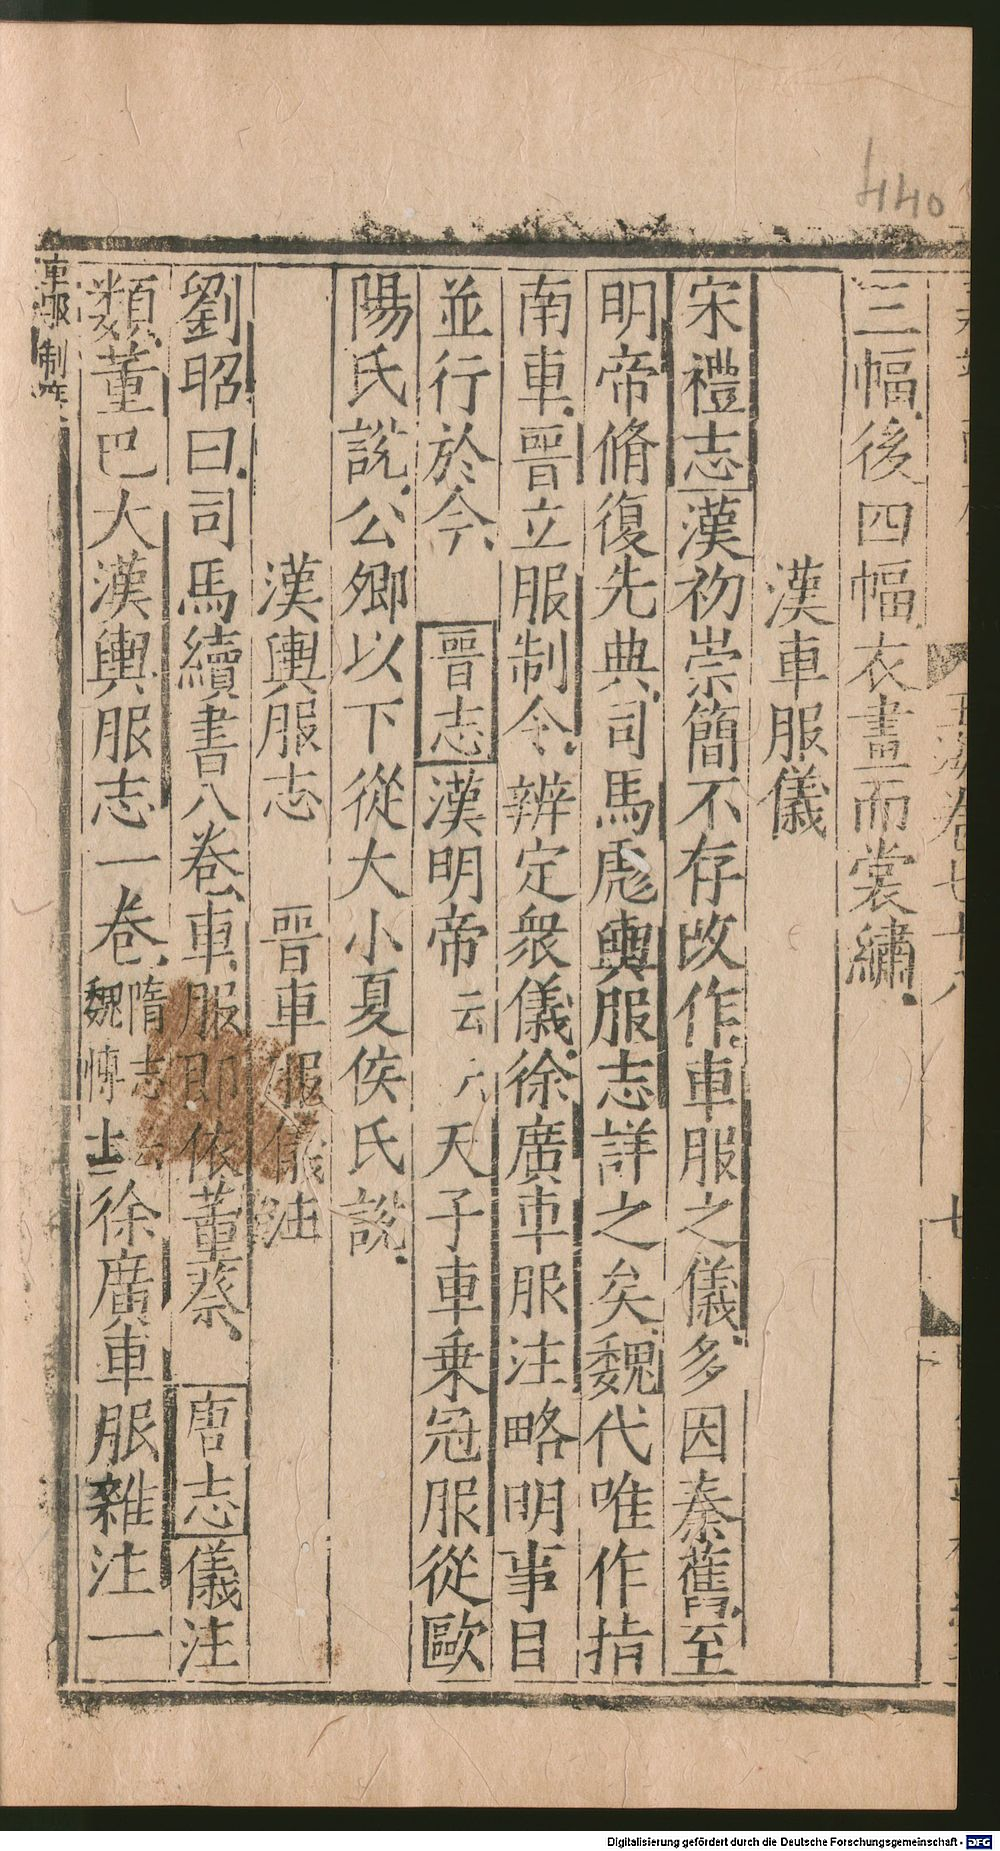 440
三幅後四幅衣畫而裳繡
漢車服儀
宋禮志漢初崇簡不存改作車服之儀多因秦舊至
明帝脩復先典司馬彪輿服志詳之矣魏代唯作指
南車晉立服制令辨定衆儀徐廣車服注略明事目
並行於今 晉志漢明帝 天子車乗冠服從歐
陽氏說公卿以下從大小夏侯氏說
漢輿服志 晉車服儀注
劉昭曰司馬續書八卷車服即依董蔡 唐志儀注
類董巴大漢輿服志一卷隋志云魏博士徐廣車服雜注一
車服 制度
卷七十八
七
Digitalisierung gefördert durch die Deutsche Forschungsgemeinschaft - DFG